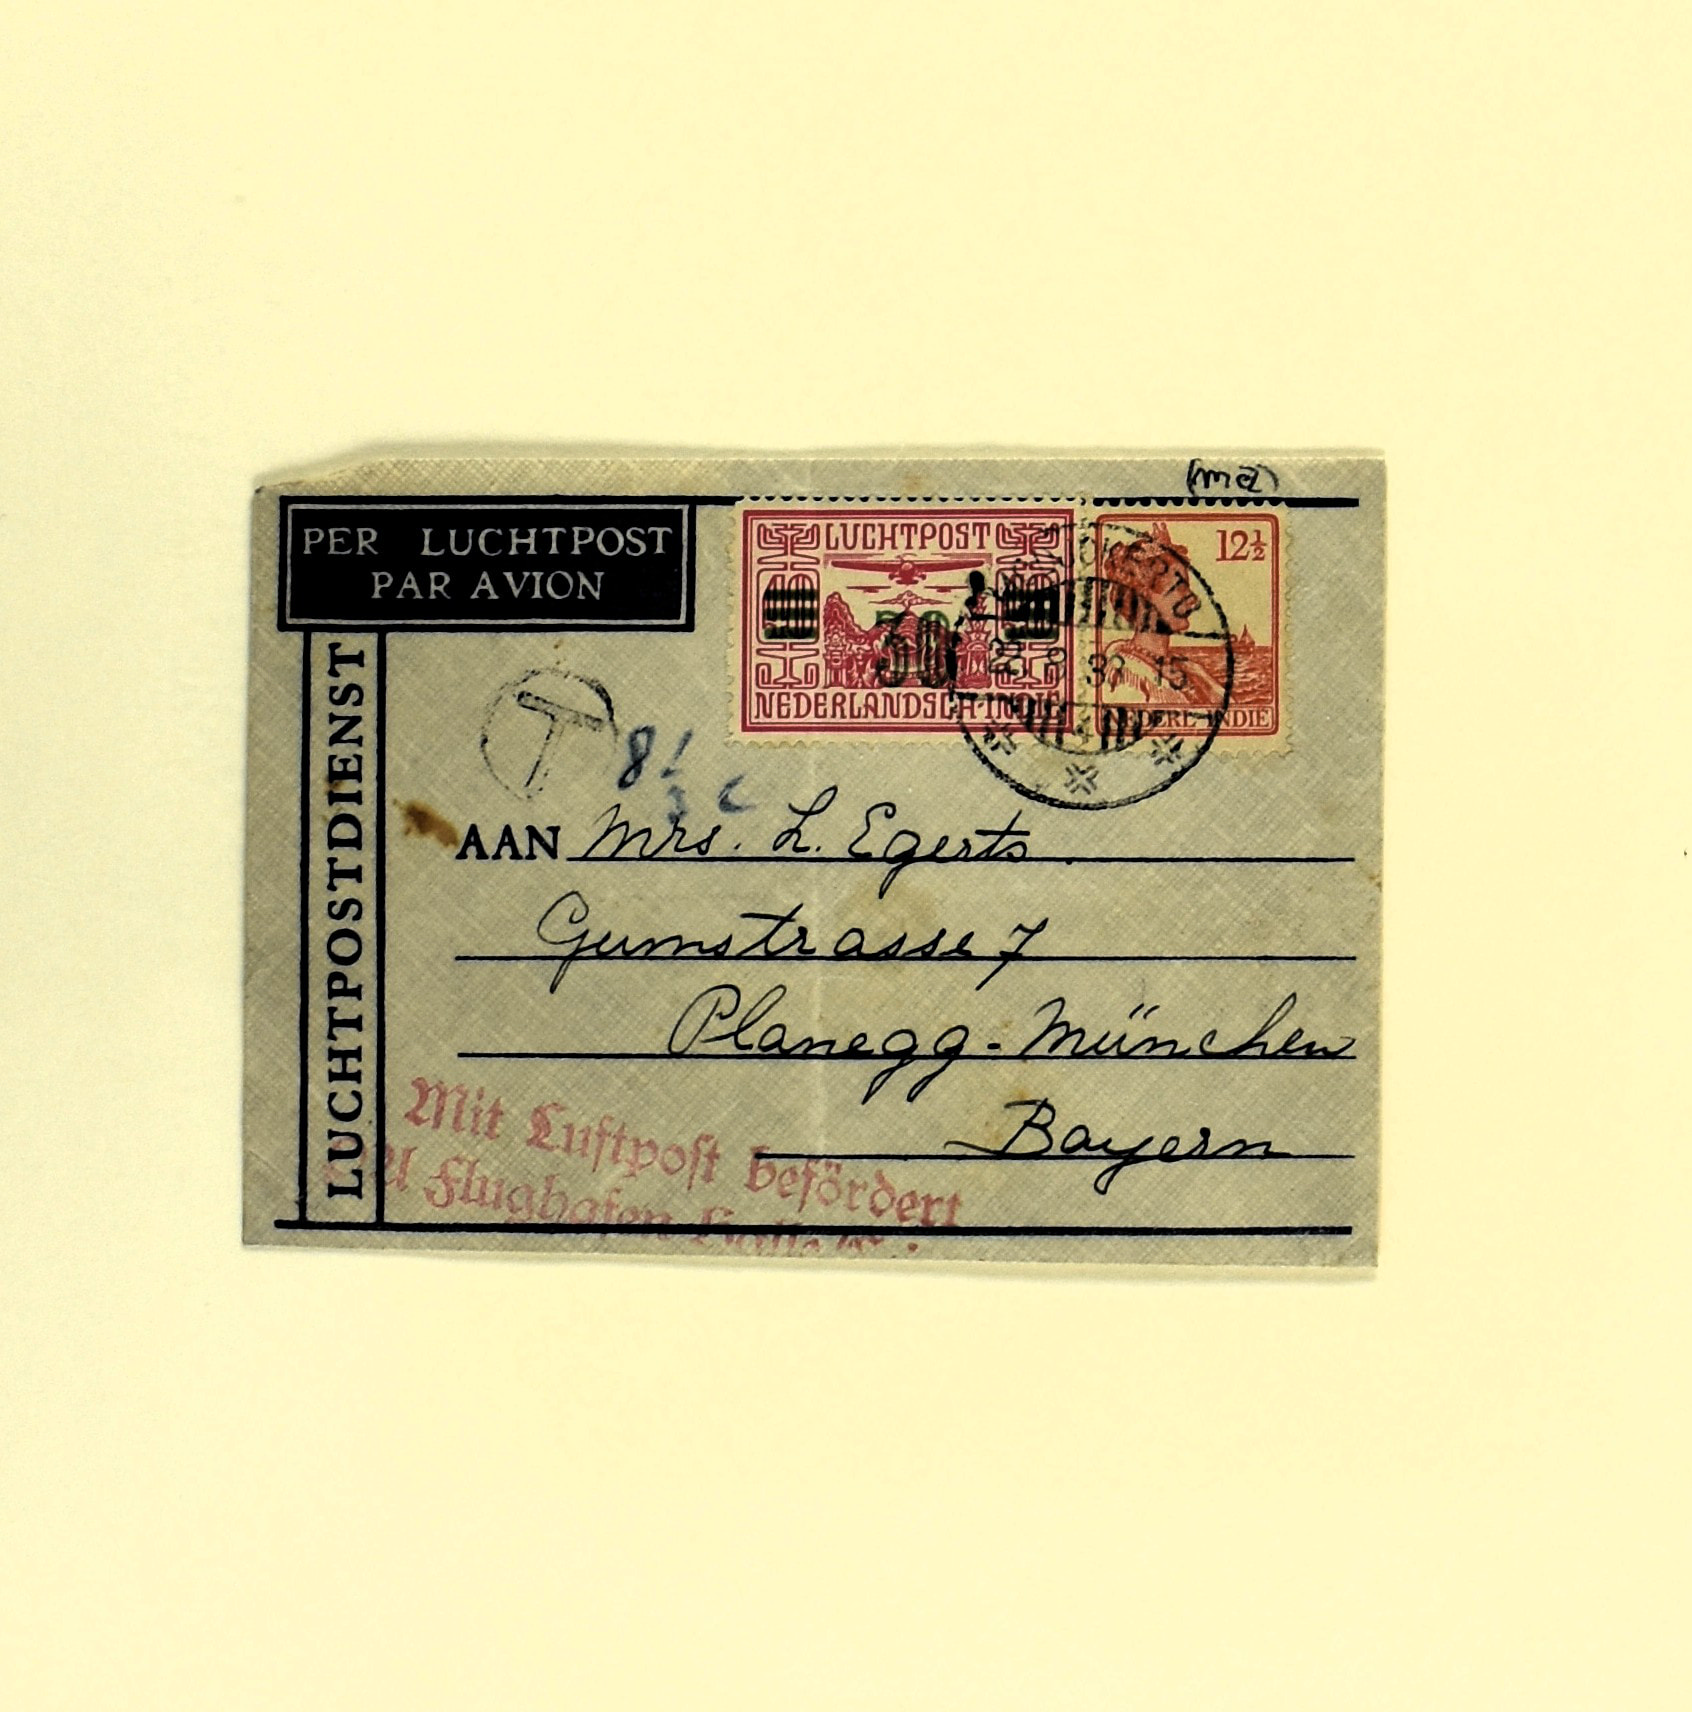 (ma)
PER LUCHTPOST
PAR AVION
LUCHTPOST
40 40
30
NEDERLANDSCH-INDIË
12½
NEDERL-INDIE
POERWOKERTO
23 8 38 15
4
LUCHTPOSTDIENST
T
8⅓ c
AAN Mrs. L. Egerts.
Gumstrasse 7
Planegg-München
Bayern
Mit Luftpost befördert
Flughafen